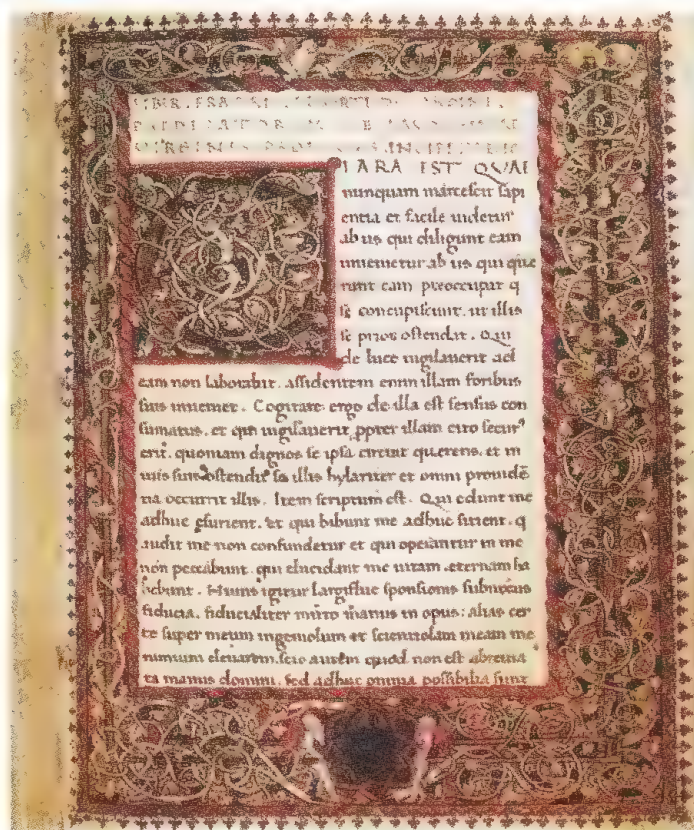 LIARA EST QUAE
nunquam marcescit sapi
entia et facile uidetur
ab iis qui diligunt eam
inuenietur ab iis qui que
runt eam preoccupat q
se concupiscunt. ut illis
se prior ostendat. Qui
de luce uigilauerit ad
eam non laborabit. assidentem enim illam foribus
suis inueniet. Cogitare ergo de illa est sensus con
sumatus. et qui uigilauerit ppter illam cito secur'
erit. quoniam dignos se ipsa circuit querens. et in
uiis suis ostendit se illis hylariter et omni prouidē
tia occurrit illis. Item scriptum est. Qui edunt me
adhuc esurient. et qui bibunt me adhuc sitient. q
audit me non confundetur et qui operantur in me
non peccabunt. qui elucidant me uitam eternam ha
bebunt. Huius igitur largiflue sponsionis subnixus
fiducia. fiducialiter mitto manus in opus: alias cer
te super meum ingeniolum et scientiolam meam me
nimium eleuarem. scio autem quod non est abreuia
ta manus domini. sed adhuc omnia possibilia sunt